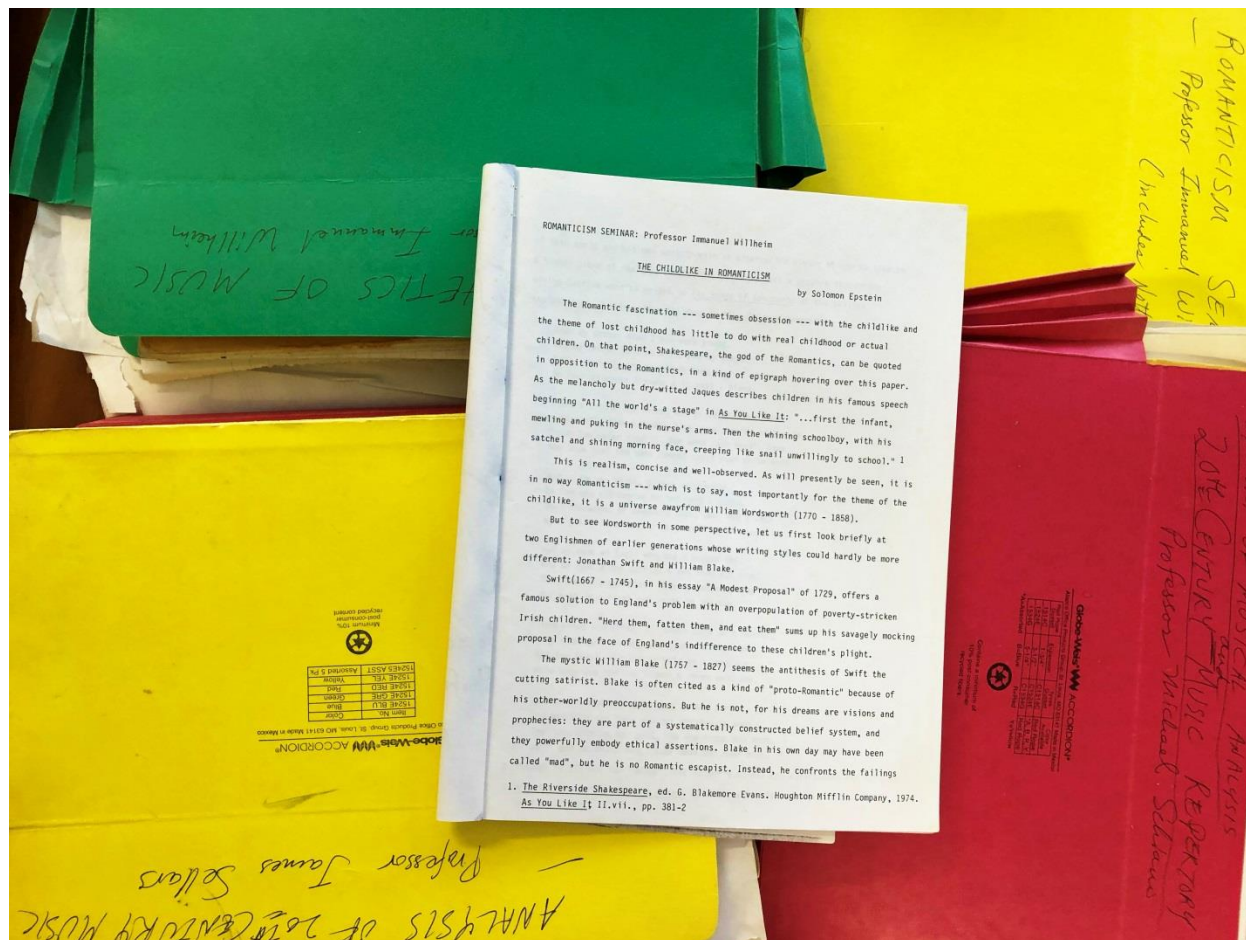 ETICS OF MUSIC
Immanuel Willheim
ROMANTICISM SE
— Professor Immanuel Wi
(includes Not
ROMANTICISM SEMINAR: Professor Immanuel Willheim
THE CHILDLIKE IN ROMANTICISM
by Solomon Epstein
The Romantic fascination --- sometimes obsession --- with the childlike and
the theme of lost childhood has little to do with real childhood or actual
children. On that point, Shakespeare, the god of the Romantics, can be quoted
in opposition to the Romantics, in a kind of epigraph hovering over this paper.
As the melancholy but dry-witted Jaques describes children in his famous speech
beginning "All the world's a stage" in As You Like It: "...first the infant,
mewling and puking in the nurse's arms. Then the whining schoolboy, with his
satchel and shining morning face, creeping like snail unwillingly to school." 1
This is realism, concise and well-observed. As will presently be seen, it is
in no way Romanticism --- which is to say, most importantly for the theme of the
childlike, it is a universe awayfrom William Wordsworth (1770 - 1858).
But to see Wordsworth in some perspective, let us first look briefly at
two Englishmen of earlier generations whose writing styles could hardly be more
different: Jonathan Swift and William Blake.
Swift(1667 - 1745), in his essay "A Modest Proposal" of 1729, offers a
famous solution to England's problem with an overpopulation of poverty-stricken
Irish children. "Herd them, fatten them, and eat them" sums up his savagely mocking
proposal in the face of England's indifference to these children's plight.
The mystic William Blake (1757 - 1827) seems the antithesis of Swift the
cutting satirist. Blake is often cited as a kind of "proto-Romantic" because of
his other-worldly preoccupations. But he is not, for his dreams are visions and
prophecies: they are part of a systematically constructed belief system, and
they powerfully embody ethical assertions. Blake in his own day may have been
called "mad", but he is no Romantic escapist. Instead, he confronts the failings
1. The Riverside Shakespeare, ed. G. Blakemore Evans. Houghton Mifflin Company, 1974.
As You Like It, II.vii., pp. 381-2
ANALYSIS OF 20th CENTURY MUSIC
— Professor James Sellars
Globe-Weis ACCORDION®
Office Products Group, St. Louis, MO 63141 Made in Mexico
Item No. Color
1524E BLU Blue
1524E GRE Green
1524E RED Red
1524E YEL Yellow
1524ES ASST Assorted 5 Pk.
Minimum 10%
post-consumer
recycled content
OF MUSICAL ANALYSIS
and
20th CENTURY MUSIC REPERTORY
Professor Michael Schiano
Globe-Weis ACCORDION®